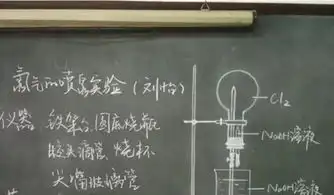 氯气的喷泉实验(刘怡)
仪器 铁架台、圆底烧瓶
胶头滴管、烧杯
尖嘴玻璃管
Cl2
NaOH溶液
NaOH溶液